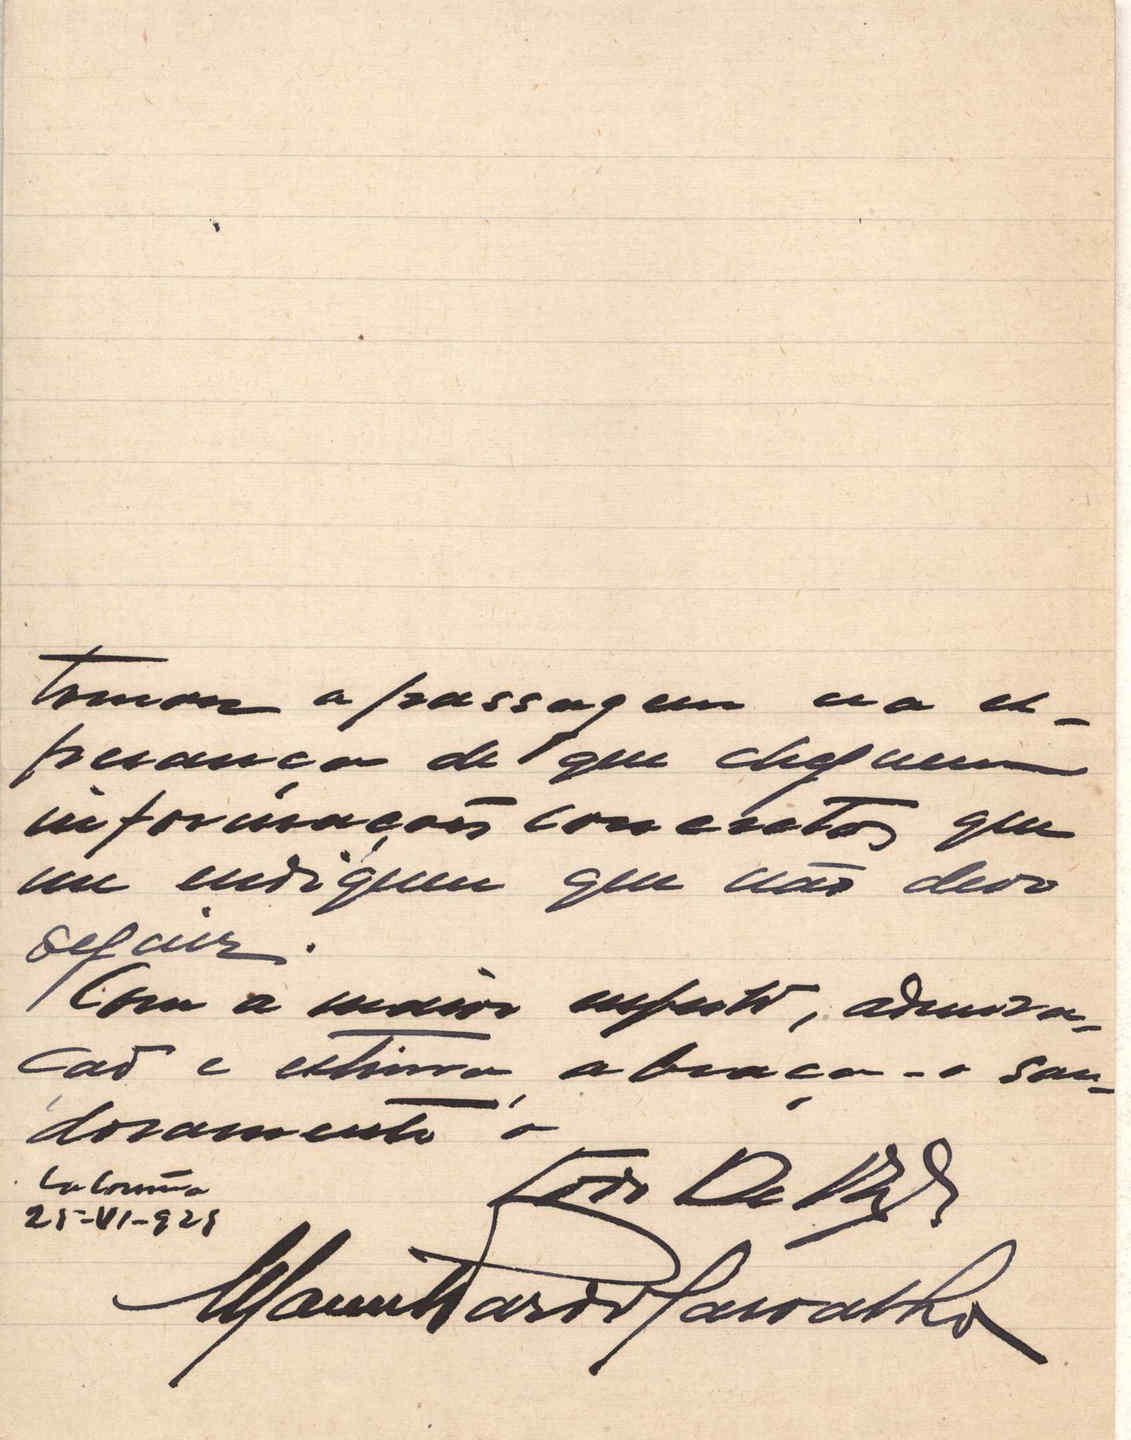 tomar a passagem na es-
perança de que cheguem
informações concretas que
me indiquem que não devo
seguir.
Com a maior respeito, admira-
ção e estima, abraça-o sau-
dosamente o
Todo De V.
La Coruña
25-VI-925
Manuel Pardo Carvalho